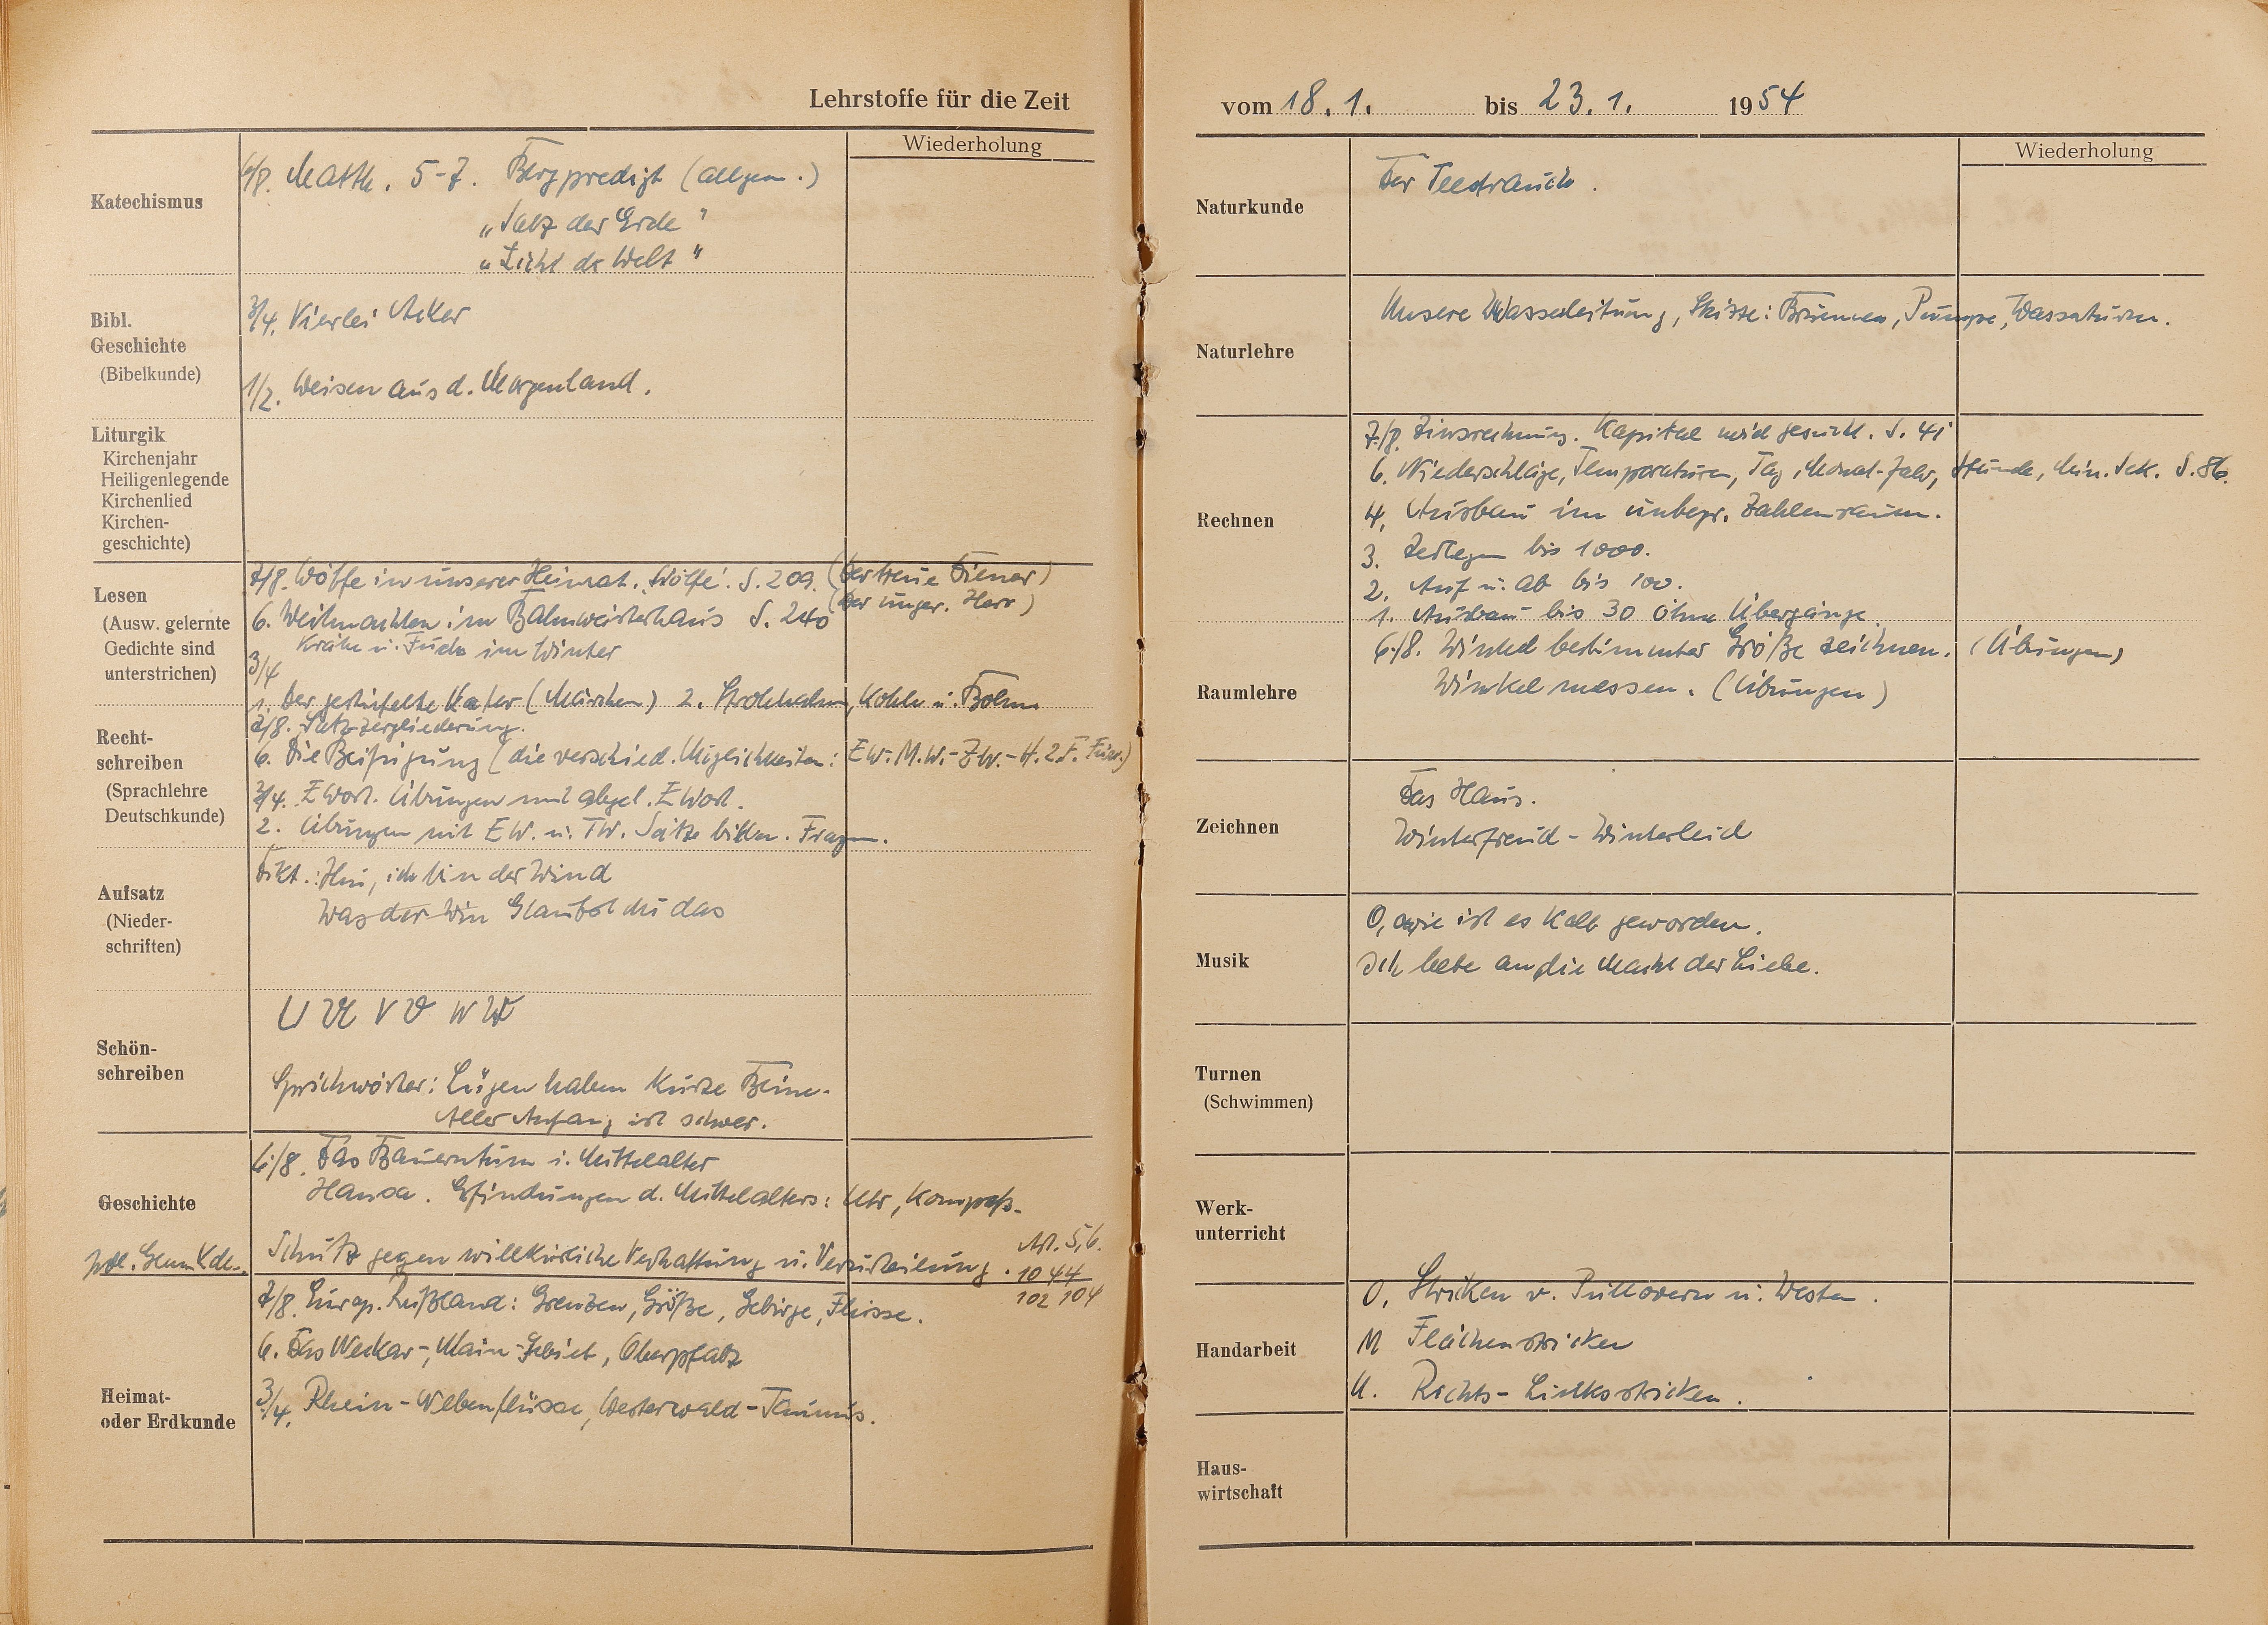 Lehrstoffe für die Zeit
Wiederholung
Katechismus
6/8. Matth. 5-7. Bergpredigt (allgem.)
„Salz der Erde"
„Licht der Welt"
Bibl.
Geschichte
(Bibelkunde)
3/4. Vierlei Acker
1/2. Weisen aus d. Morgenland.
Liturgik
Kirchenjahr
Heiligenlegende
Kirchenlied
Kirchen-
geschichte)
Lesen
(Ausw. gelernte
Gedichte sind
unterstrichen)
7/8. Wölfe in unserer Heimat. „Wölfe". S. 209. (Der treue Diener)
(Der unger. Herr)
6. Weihnachten im Bahnwärterhaus S. 240
Krähe u. Fuchs im Winter
3/4
1. Der gestiefelte Kater (Märchen) 2. Strohhalm, Kohle u. Bohne
Recht-
schreiben
(Sprachlehre
Deutschkunde)
7/8. Satzzergliederung.
6. Die Beifügung (die verschied. Möglichkeiten: EW.-M.W.-ZW.-H.2F. Fürw.)
3/4. ZWort. Übungen mit abgel. ZWort.
2. Übungen mit EW. u. TW. Sätze bilden. Fragen.
Aufsatz
(Nieder-
schriften)
Dikt.: Hui, ich bin der Wind
Was der Win Glaubst du das
Schön-
schreiben
U U V V W W
Sprichwörter: Lügen haben kurze Beine.
Aller Anfang ist schwer.
Geschichte
6./8. Das Bauerntum i. Mittelalter
Hansa. Erfindungen d. Mittelalters: Uhr, Kompaß.
Schutz gegen willkürliche Verhaftung u. Verurteilung. Art. 5,6.
104 4
102 104
Heimat-
oder Erdkunde
7/8. Europ. Rußland: Grenzen, Größe, Gebirge, Flüsse.
6. Das Neckar-, Main-Gebiet, Oberpfalz
3/4. Rhein-Nebenflüsse, Westerwald-Taunus.
vom 18. 1. bis 23. 1. 1954
Wiederholung
Naturkunde
Der Teestrauch.
Naturlehre
Unsere Wasserleitung, Skizze: Brunnen, Pumpe, Wasserturm.
Rechnen
7./8. Zinsrechnung. Kapital wird gesucht. S. 41
6. Niederschläge, Temperaturen, Tag, Monat-Jahr, Stunde, Min. Sek. S. 86.
4. Ausbau im unbegr. Zahlenraum.
3. Zerlegen bis 1000.
2. Auf u. ab bis 100.
1. Ausbau bis 30 ohne Übergänge.
Raumlehre
6./8. Winkel bestimmter Größe zeichnen. (Übungen)
Winkel messen. (Übungen)
Zeichnen
Das Haus.
Winterfreud - Winterleid
Musik
O, wie ist es kalt geworden.
Ich bete an die Macht der Liebe.
Turnen
(Schwimmen)
Werk-
unterricht
Handarbeit
O. Stricken v. Pullovern u. Westen.
M Flächenstricken
U. Rechts-Linksstricken.
Haus-
wirtschaft